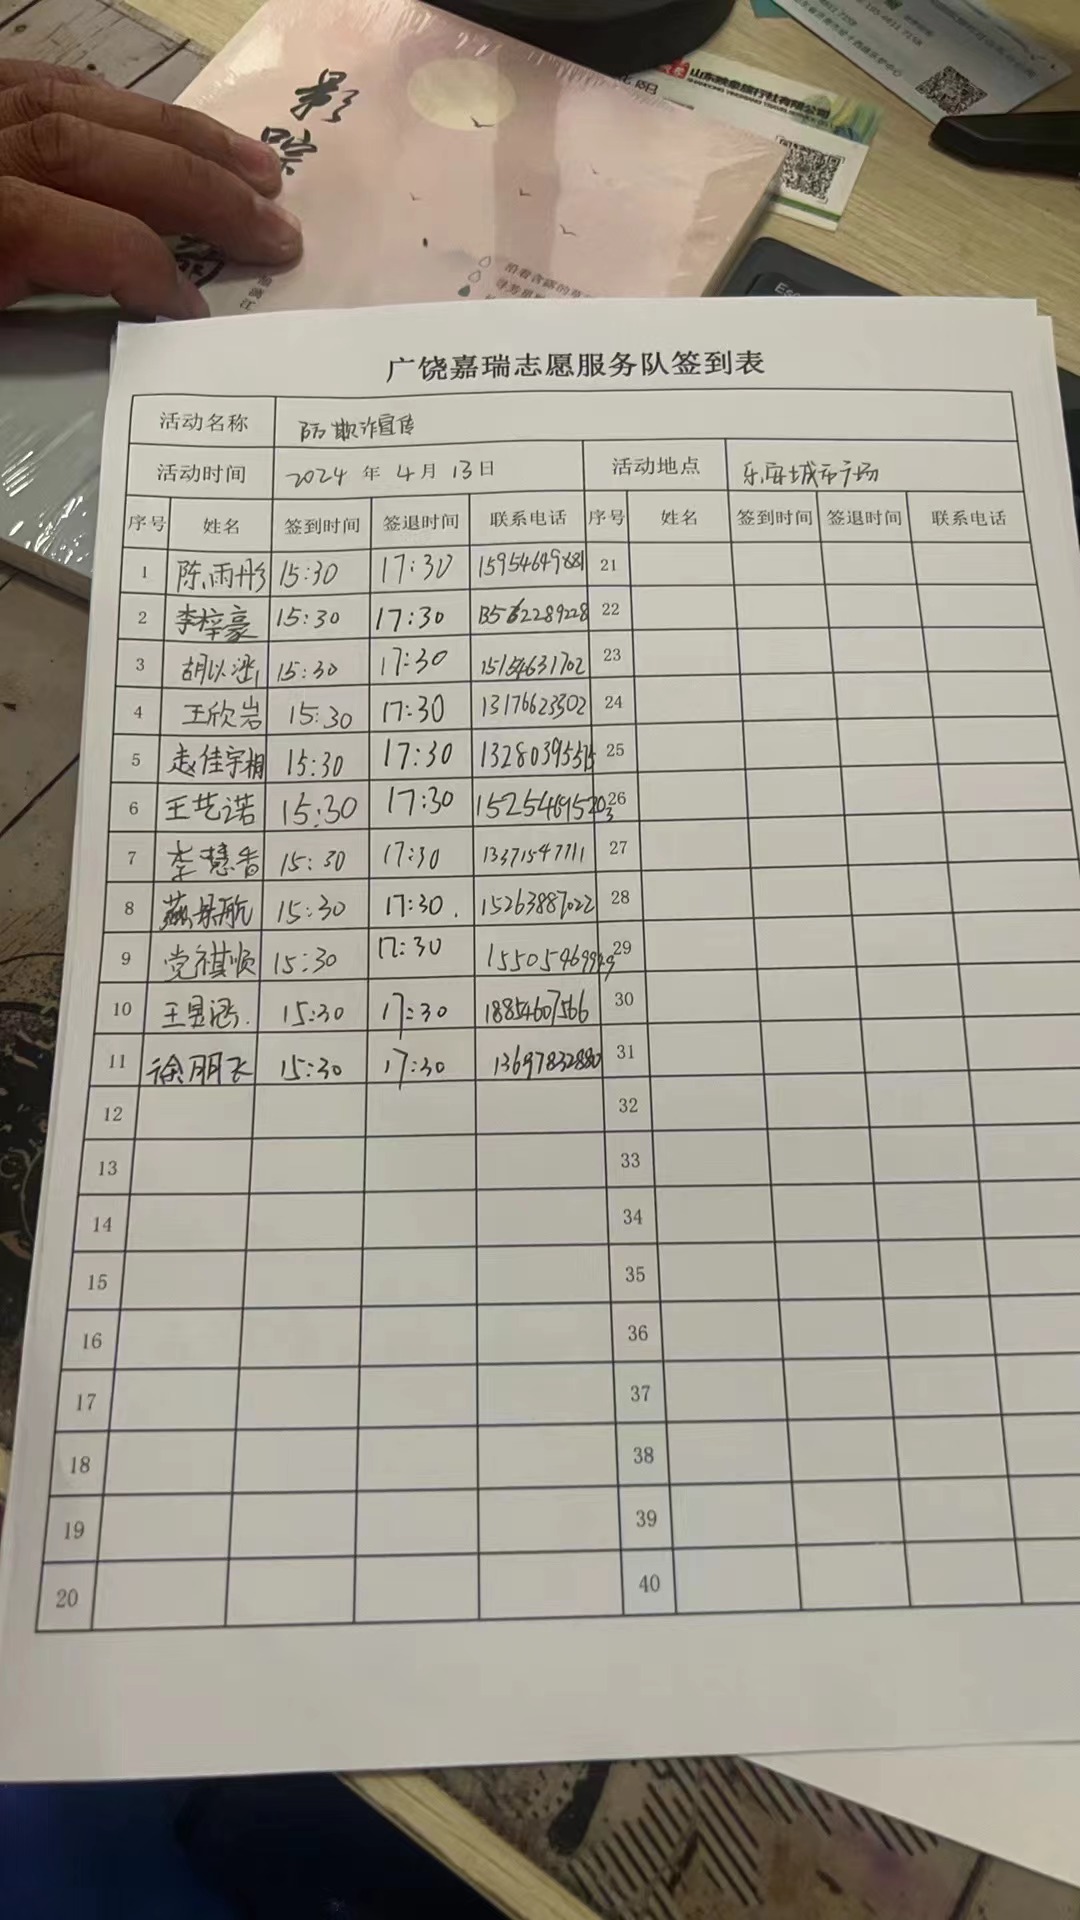 影
踪
山东映象旅行社有限公司
广饶嘉瑞志愿服务队签到表
活动名称 防欺诈宣传
活动时间 2024 年 4 月 13 日 活动地点 乐安城市广场
序号 姓名 签到时间 签退时间 联系电话 序号 姓名 签到时间 签退时间 联系电话
1 陈雨彤 15:30 17:30 15954649881 21
2 李梓豪 15:30 17:30 13562289228 22
3 胡以涵 15:30 17:30 15154631702 23
4 王欣岩 15:30 17:30 13176623302 24
5 赵佳宇桐 15:30 17:30 25
6 王艺诺 15:30 17:30 26
7 李慧香 15:30 17:30 13371547711 27
8 15:30 17:30 15263887022 28
9 党祺顺 15:30 17:30 29
10 王昱涵 15:30 17:30 18854607566 30
11 徐朋飞 15:30 17:30 13697832880 31
12 32
13 33
14 34
15 35
16 36
17 37
18 38
19 39
20 40